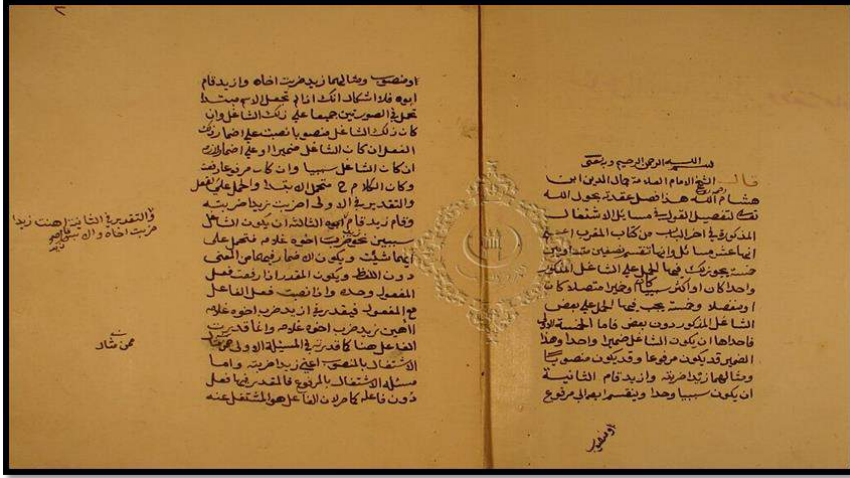 بسم الله الرحمن الرحيم وبه ثقتي
قال الشيخ الامام العلامة جمال الدين ابن
هشام رحمه الله هذا فصل عقدته بحول الله
في تفصيل القول في مسايل الاشتغال
المذكورة في اخر الباب من كتاب المقرب اعلم
انها عشر مسائل وانها تنقسم نصفين
خمسة يجوز لك فيها الحمل علي الشاغل المذكور
واحدا كان او اكثر سببيا كان وضميرا متصلا كان
او منفصلا وخمسة يجب فيها الحمل علي بعض
الشاغل المذكور دون بعض فاما الخمسة الاولي
فاحداها ان يكون الشاغل ضميرا واحدا وهذا
الضمير قد يكون مرفوعا وقد يكون منصوبا
ومثالهما زيدا ضربته وازيد قام الثانية
ان يكون سببيا واحدا وينقسم ايضا الي مرفوع
او منصوب
٢
او منصوب ومثالهما زيد ضربت اخاه وازيد قام
ابوه فلا اشكال انك اذا لم تجعل الاسم مبتدا
تحمل في الصورتين جميعا علي ذلك الشاغل وان
كان ذلك الشاغل منصوبا نصبت علي اضمار ذلك
الفعل ان كان الشاغل ضميرا او علي اضمار لازمه
ان كان الشاغل سببيا وان كان مرفوعا رفعت
وكان الكلام ح محتمل الابتدا والحمل علي الفعل
والتقدير في الاولي اضربت زيدا ضربته
وقام زيد قام ابوه الثالثة ان يكون الشاغل
سببين نحو ازيد ضرب اخوه غلامه فتحمل علي
ايهما شئت ويكون الاضمار فيهما من المعني
دون اللفظ ويكون المقدر اذا رفعت فعل
المفعول وحده واذا نصبت فعل الفاعل
مع المفعول فيقدر في ازيد ضرب اخوه غلامه
ااهين زيد ضرب اخوه غلامه وانما قدرت
الفاعل هنا كما قدرته في المسئلة الاولي
الاشتغال بالمنصوب اعني زيدا ضربته واما
مسئلة الاشتغال بالمرفوع فالمقدر فيها فعل
دون فاعله كما مر لان الفاعل هو المشتغل عنه
والتقدير في الثانية اهنت زيدا
ضربت اخاه